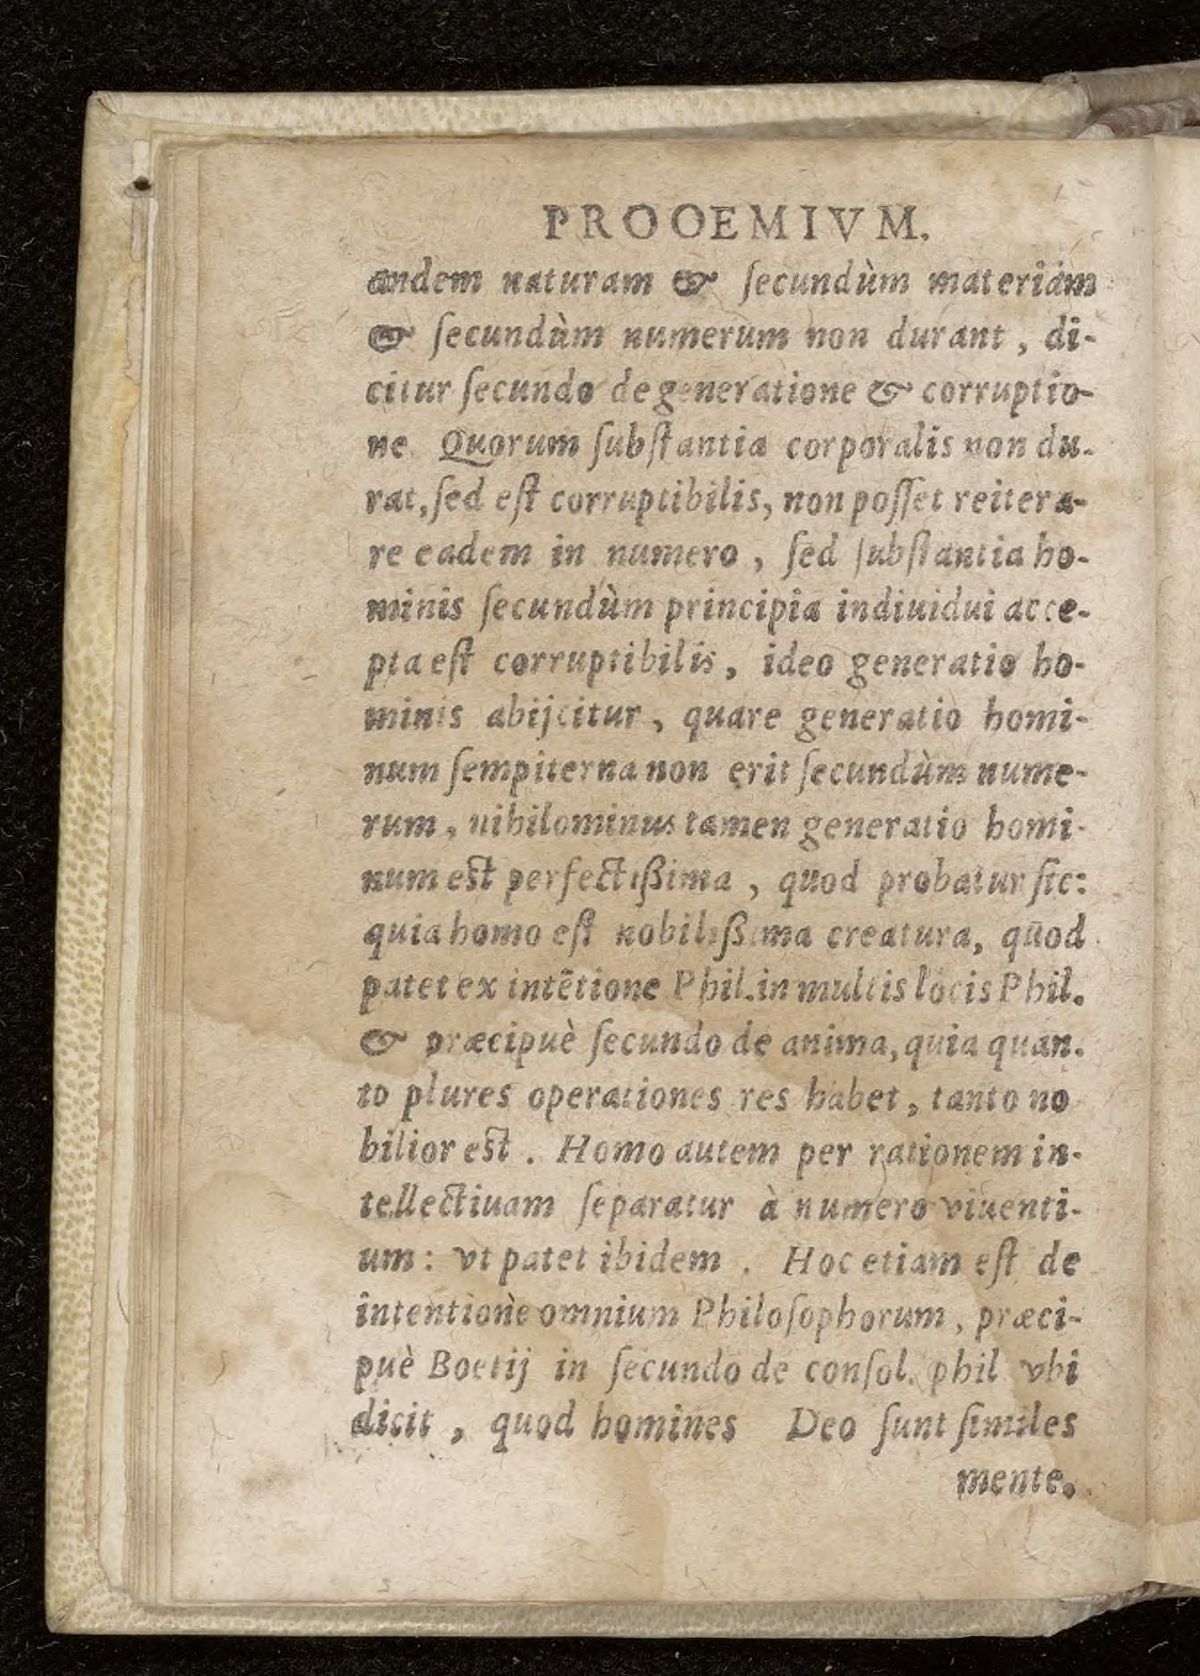 PROOEMIVM.
andem naturam & ſecundùm materiam
& ſecundùm numerum non durant, di-
citur ſecundo de generatione & corruptio-
ne. Quorum ſubſtantia corporalis non du-
rat, ſed eſt corruptibilis, non poſſet reitera-
re eadem in numero, ſed ſubſtantia ho-
minis ſecundùm principia indiuidui acce-
pta eſt corruptibilis, ideo generatio ho-
minis abijcitur, quare generatio homi-
num ſempiterna non erit ſecundùm nume-
rum, nihilominus tamen generatio homi-
num eſt perfectißima, quod probatur ſic:
quia homo eſt nobilißima creatura, quod
patet ex intētione Phil. in multis locis Phil.
& præcipuè ſecundo de anima, quia quan-
to plures operationes res habet, tanto no
bilior eſt. Homo autem per rationem in-
tellectiuam ſeparatur à numero viuenti-
um: vt patet ibidem. Hoc etiam eſt de
intentione omnium Philoſophorum, præci-
puè Boetij in ſecundo de conſol. phil vbi
dicit, quod homines Deo ſunt ſimiles
mente.